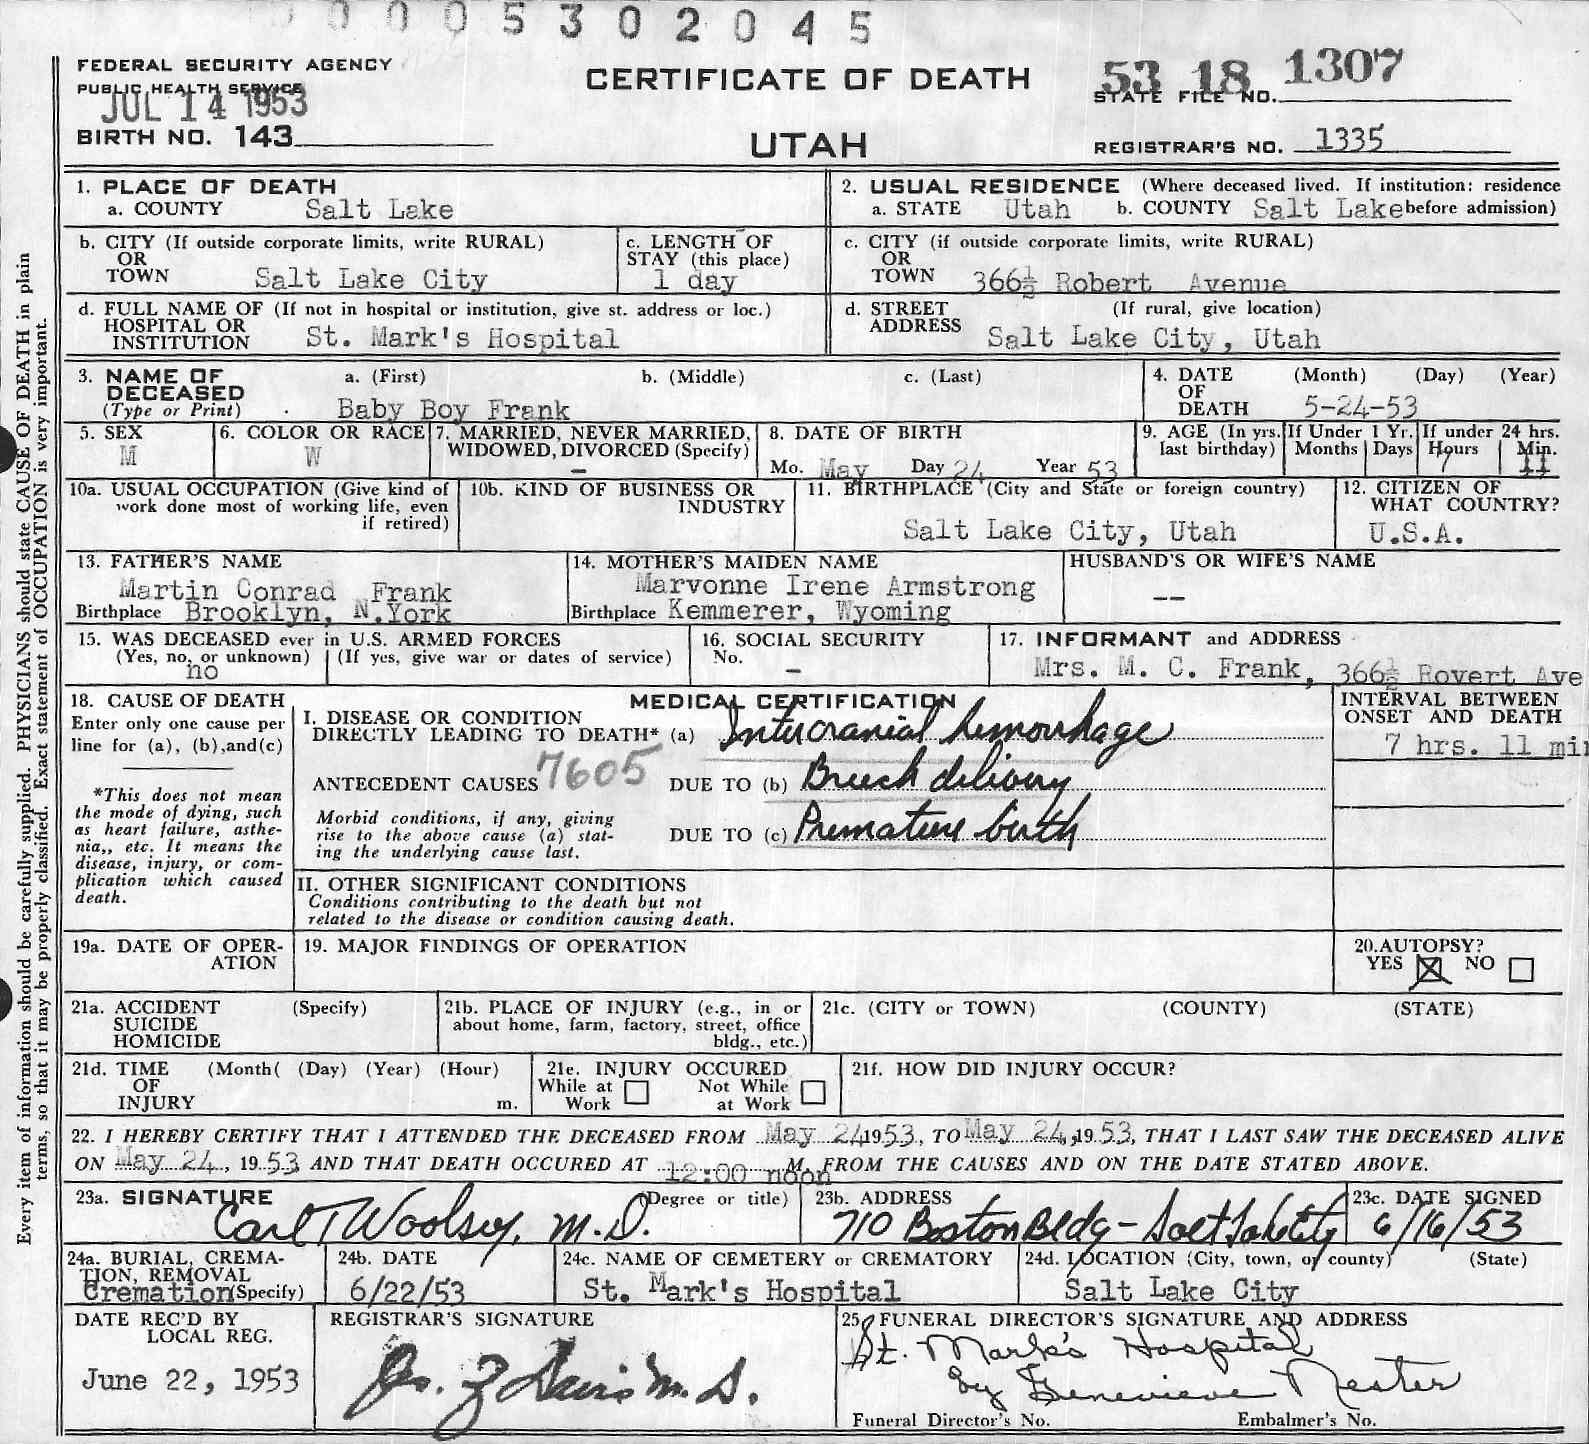 0005302045
FEDERAL SECURITY AGENCY
PUBLIC HEALTH SERVICE
JUL 14 1953
BIRTH NO. 143
CERTIFICATE OF DEATH
UTAH
53 18 1307
STATE FILE NO.
REGISTRAR'S NO. 1335
1. PLACE OF DEATH
a. COUNTY Salt Lake
2. USUAL RESIDENCE (Where deceased lived. If institution: residence
a. STATE Utah b. COUNTY Salt Lake before admission)
b. CITY (If outside corporate limits, write RURAL)
OR
TOWN Salt Lake City
c. LENGTH OF
STAY (this place)
1 day
c. CITY (if outside corporate limits, write RURAL)
OR
TOWN 366½ Robert Avenue
d. FULL NAME OF (If not in hospital or institution, give st. address or loc.)
HOSPITAL OR
INSTITUTION St. Mark's Hospital
d. STREET (If rural, give location)
ADDRESS
Salt Lake City, Utah
3. NAME OF a. (First) b. (Middle) c. (Last)
DECEASED
(Type or Print) Baby Boy Frank
4. DATE (Month) (Day) (Year)
OF
DEATH 5-24-53
5. SEX
M
6. COLOR OR RACE
W
7. MARRIED, NEVER MARRIED,
WIDOWED, DIVORCED (Specify)
-
8. DATE OF BIRTH
Mo. May Day 24 Year 53
9. AGE (In yrs.
last birthday)
If Under 1 Yr.
Months Days
If under 24 hrs.
Hours Min.
7 11
10a. USUAL OCCUPATION (Give kind of
work done most of working life, even
if retired)
10b. KIND OF BUSINESS OR
INDUSTRY
11. BIRTHPLACE (City and State or foreign country)
Salt Lake City, Utah
12. CITIZEN OF
WHAT COUNTRY?
U.S.A.
13. FATHER'S NAME
Martin Conrad Frank
Birthplace Brooklyn, N.York
14. MOTHER'S MAIDEN NAME
Marvonne Irene Armstrong
Birthplace Kemmerer, Wyoming
HUSBAND'S OR WIFE'S NAME
--
15. WAS DECEASED ever in U.S. ARMED FORCES
(Yes, no, or unknown) (If yes, give war or dates of service)
no
16. SOCIAL SECURITY
No.
-
17. INFORMANT and ADDRESS
Mrs. M. C. Frank, 366½ Rovert Ave
18. CAUSE OF DEATH
Enter only one cause per
line for (a), (b), and (c)
*This does not mean
the mode of dying, such
as heart failure, asthe-
nia,, etc. It means the
disease, injury, or com-
plication which caused
death.
MEDICAL CERTIFICATION
I. DISEASE OR CONDITION
DIRECTLY LEADING TO DEATH* (a) Intercranial hemorrhage
ANTECEDENT CAUSES 7605 DUE TO (b) Breech delivery
Morbid conditions, if any, giving
rise to the above cause (a) stat-
ing the underlying cause last.
DUE TO (c) Premature birth
INTERVAL BETWEEN
ONSET AND DEATH
7 hrs. 11 min
II. OTHER SIGNIFICANT CONDITIONS
Conditions contributing to the death but not
related to the disease or condition causing death.
19a. DATE OF OPER-
ATION
19. MAJOR FINDINGS OF OPERATION
20. AUTOPSY?
YES NO
21a. ACCIDENT (Specify)
SUICIDE
HOMICIDE
21b. PLACE OF INJURY (e.g., in or
about home, farm, factory, street, office
bldg., etc.)
21c. (CITY or TOWN) (COUNTY) (STATE)
21d. TIME (Month( (Day) (Year) (Hour)
OF
INJURY m.
21e. INJURY OCCURED
While at Not While
Work at Work
21f. HOW DID INJURY OCCUR?
22. I HEREBY CERTIFY THAT I ATTENDED THE DECEASED FROM May 24 1953, TO May 24, 1953, THAT I LAST SAW THE DECEASED ALIVE
ON May 24, 1953 AND THAT DEATH OCCURED AT 12:00 noon M, FROM THE CAUSES AND ON THE DATE STATED ABOVE.
23a. SIGNATURE (Degree or title)
Carl T Woolsey, M.D.
23b. ADDRESS
710 Boston Bldg - Salt Lake City
23c. DATE SIGNED
6/16/53
24a. BURIAL, CREMA-
TION, REMOVAL
Cremation (Specify)
24b. DATE
6/22/53
24c. NAME OF CEMETERY or CREMATORY
St. Mark's Hospital
24d. LOCATION (City, town, or county) (State)
Salt Lake City
DATE REC'D BY
LOCAL REG.
June 22, 1953
REGISTRAR'S SIGNATURE
Davis M.D.
25. FUNERAL DIRECTOR'S SIGNATURE AND ADDRESS
St. Mark's Hospital
by Genevieve Nester
Funeral Director's No. Embalmer's No.
Every item of information should be carefully supplied. PHYSICIANS should state CAUSE OF DEATH in plain
terms, so that it may be properly classified. Exact statement of OCCUPATION is very important.